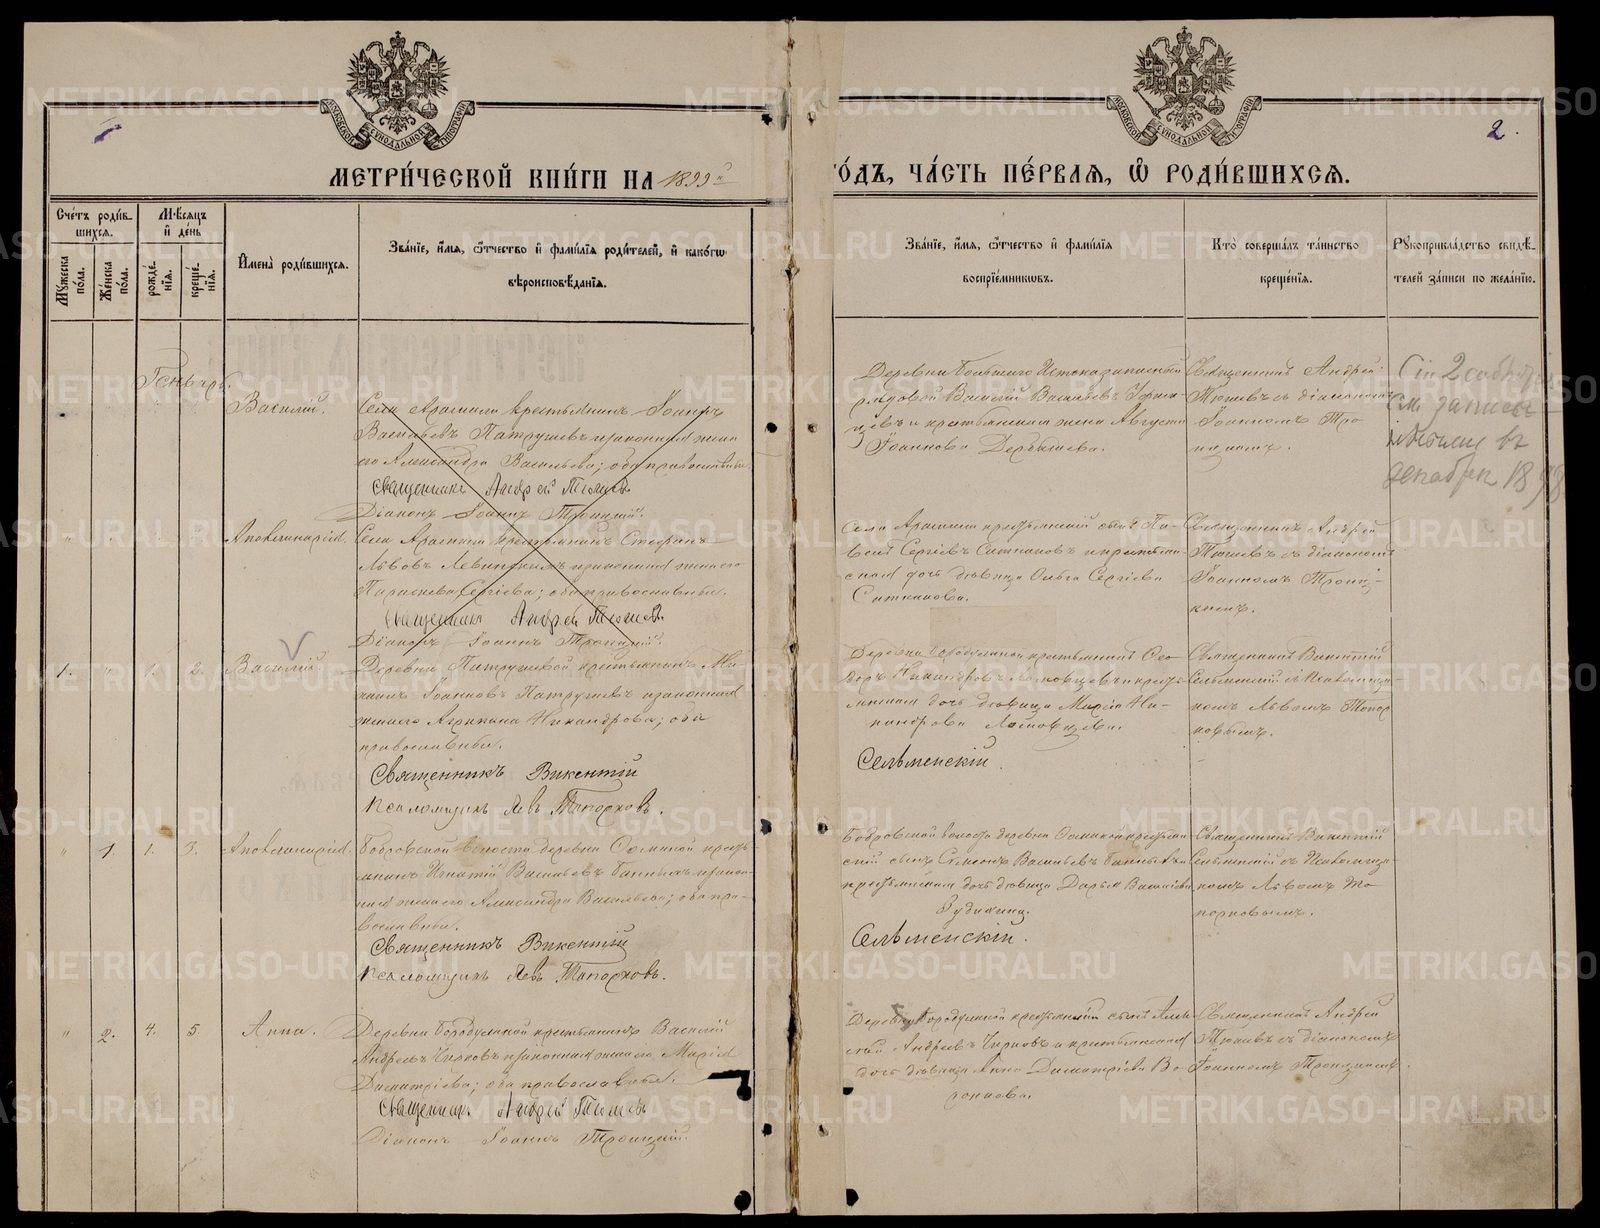 МЕТРИ́ЧЕСКОЙ КНИ́ГИ НА 1899й
ГО́ДЪ, ЧА́СТЬ ПЕ́РВАЯ, Ѽ РОДИ́ВШИХСЯ.
2.
Сче́тъ роди́в-
шихся.
Мѣ́сяцъ
и҆ де́нь
Мꙋ́жеска
по́ла.
Же́нска
по́ла.
рожде́-
нїя.
креще́-
нїя.
И҆мена̀ роди́вшихся.
Зва́нїе, и҆́мя, ѻ҆́тчество и҆ фами́лїя роди́телей, и҆ како́гѡ
вѣроисповѣ́данїя.
Зва́нїе, и҆́мя, ѻ҆́тчество и҆ фами́лїя
воспрїе́мникѡвъ.
Кто̀ соверша́лъ та́инство
креще́нїя.
Рꙋкоприкла́дство свидѣ́-
телей за́писи по жела́нїю.
Генварь.
Василій.
Села Арамили крестьянинъ Іоаннъ
Васильевъ Патрушевъ и законная жена
его Александра Васильева; оба православные.
Священникъ Андрей Тюшевъ
Діаконъ Іоаннъ Троицкій.
Деревни Большого Истока запасный
рядовой Василій Васильевъ
и крестьянская жена Августа
Іоаннова Дербышева.
Священникъ Андрей
Тюшевъ съ діакономъ
Іоанномъ Тро
ицкимъ.
Сіи 2 событія
см. записи
декабрѣ 1898
Аполлинарія.
Села Арамили крестьянинъ Стефанъ
Львовъ Левинскихъ и законная жена его
Параскева Сергіева; оба православные.
Священникъ Андрей Тюшевъ
Діаконъ Іоаннъ Троицкій.
Села Арамили крестьянскій сынъ Па-
велъ Сергіевъ Ситниковъ и крестьян-
ская дочь дѣвица Ольга Сергіева
Ситникова.
Священникъ Андрей
Тюшевъ съ діакономъ
Іоанномъ Троиц-
кимъ.
1. " 1. 2. Василій.
Деревни Патрушевой крестьянинъ Ми-
хаилъ Іоанновъ Патрушевъ и законная
жена его Агрипина Никандрова; оба
православные.
Священникъ Викентій
Псаломщикъ Левъ Топорковъ.
Деревни Бородулиной крестьянинъ Ѳео-
доръ Никандровъ и кресть-
янская дочь дѣвица Марія Ни-
кандрова
Сельменскій.
Священникъ Викентій
Сельменскій съ псаломщи-
комъ Львомъ Топор
ковымъ.
" 1. 1. 3. Аполлинарія.
Бобровской волости деревни крестья-
янинъ Игнатій Васильевъ и закон-
ная жена его Александра Васильева; оба пра-
вославные.
Священникъ Викентій
Псаломщикъ Левъ Топорковъ.
Бобровской волости деревни крестьян-
скій сынъ Симеонъ Васильевъ и
крестьянская дочь дѣвица Дарья
Сельменскій.
Священникъ Викентій
Сельменскій съ псаломщи-
комъ Львомъ То
порковымъ.
" 2. 4. 5. Анна.
Деревни Бородулиной крестьянинъ Василій
Андреевъ Чирковъ и законная жена его Марія
Димитріева; оба православные.
Священникъ Андрей Тюшевъ
Діаконъ Іоаннъ Троицкій.
Деревни Бородулиной крестьянскій сынъ Алек-
сѣй Андреевъ Чирковъ и крестьянская
дочь дѣвица Анна Димитріева Во
ронова.
Священникъ Андрей
Тюшевъ съ діакономъ
Іоанномъ Троицкимъ.
METRIKI.GASO-URAL.RU